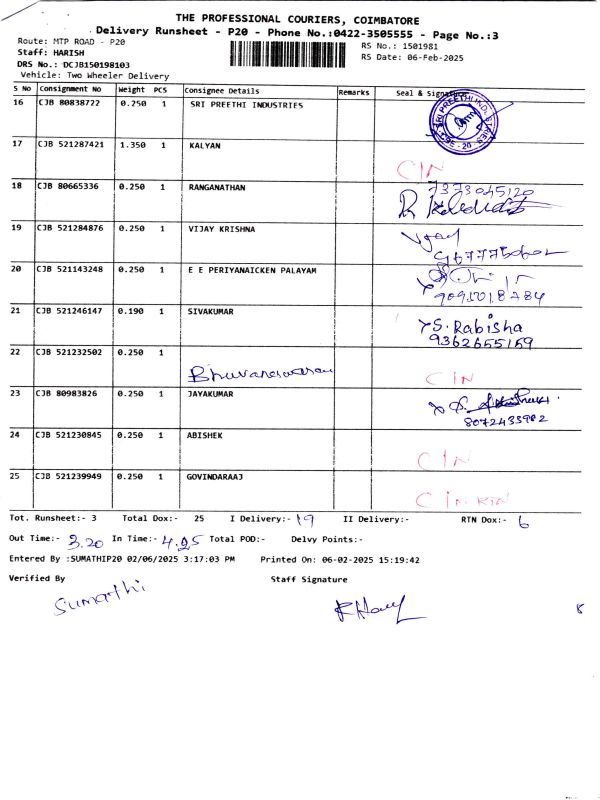 THE PROFESSIONAL COURIERS, COIMBATORE
Delivery Runsheet - P20 - Phone No.:0422-3505555 - Page No.:3
Route: MTP ROAD - P20
RS No.: 1501981
Staff: HARISH
RS Date: 06-Feb-2025
DRS No.: DCJB150198103
Vehicle: Two Wheeler Delivery
S No Consignment No Weight PCS Consignee Details Remarks Seal & Signature
16 CJB 80838722 0.250 1 SRI PREETHI INDUSTRIES
SRI PREETHI INDUSTRIES
17 CJB 521287421 1.350 1 KALYAN
CIN
18 CJB 80665336 0.250 1 RANGANATHAN
7373045120
19 CJB 521284876 0.250 1 VIJAY KRISHNA
Vijay
20 CJB 521143248 0.250 1 E E PERIYANAICKEN PALAYAM
21 CJB 521246147 0.190 1 SIVAKUMAR
S. Rabisha
9362655159
22 CJB 521232502 0.250 1
Bhuvaneswaran
CIN
23 CJB 80983826 0.250 1 JAYAKUMAR
8072433982
24 CJB 521230845 0.250 1 ABISHEK
CIN
25 CJB 521239949 0.250 1 GOVINDARAAJ
CIN RTN
Tot. Runsheet:- 3 Total Dox:- 25 I Delivery:- 19 II Delivery:- RTN Dox:- 6
Out Time:- 3.20 In Time:- 4.25 Total POD:- Delvy Points:-
Entered By :SUMATHIP20 02/06/2025 3:17:03 PM Printed On: 06-02-2025 15:19:42
Verified By Staff Signature
Sumathi
8